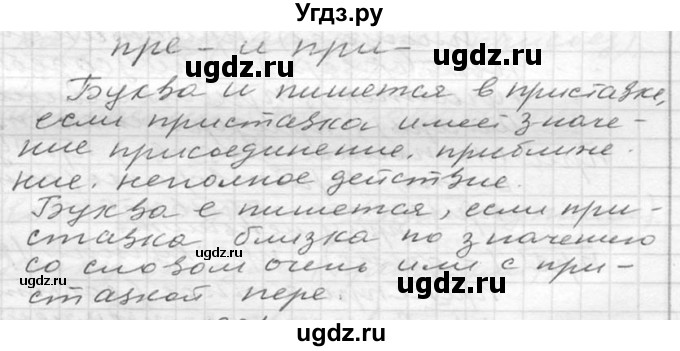 Угдз.ру
пре - и при -
Буква и пишется в приставке,
если приставка имеет значе-
ние присоединение. приближе.
ние. неполное действие.
Буква е пишется, если при-
ставка близка по значению
со словом очень или с при-
ставкой пере.
ugdz.ru
ugdz.ru
ugdz.ru
ugdz.ru
ugdz.ru
ugdz.ru
ugdz.ru